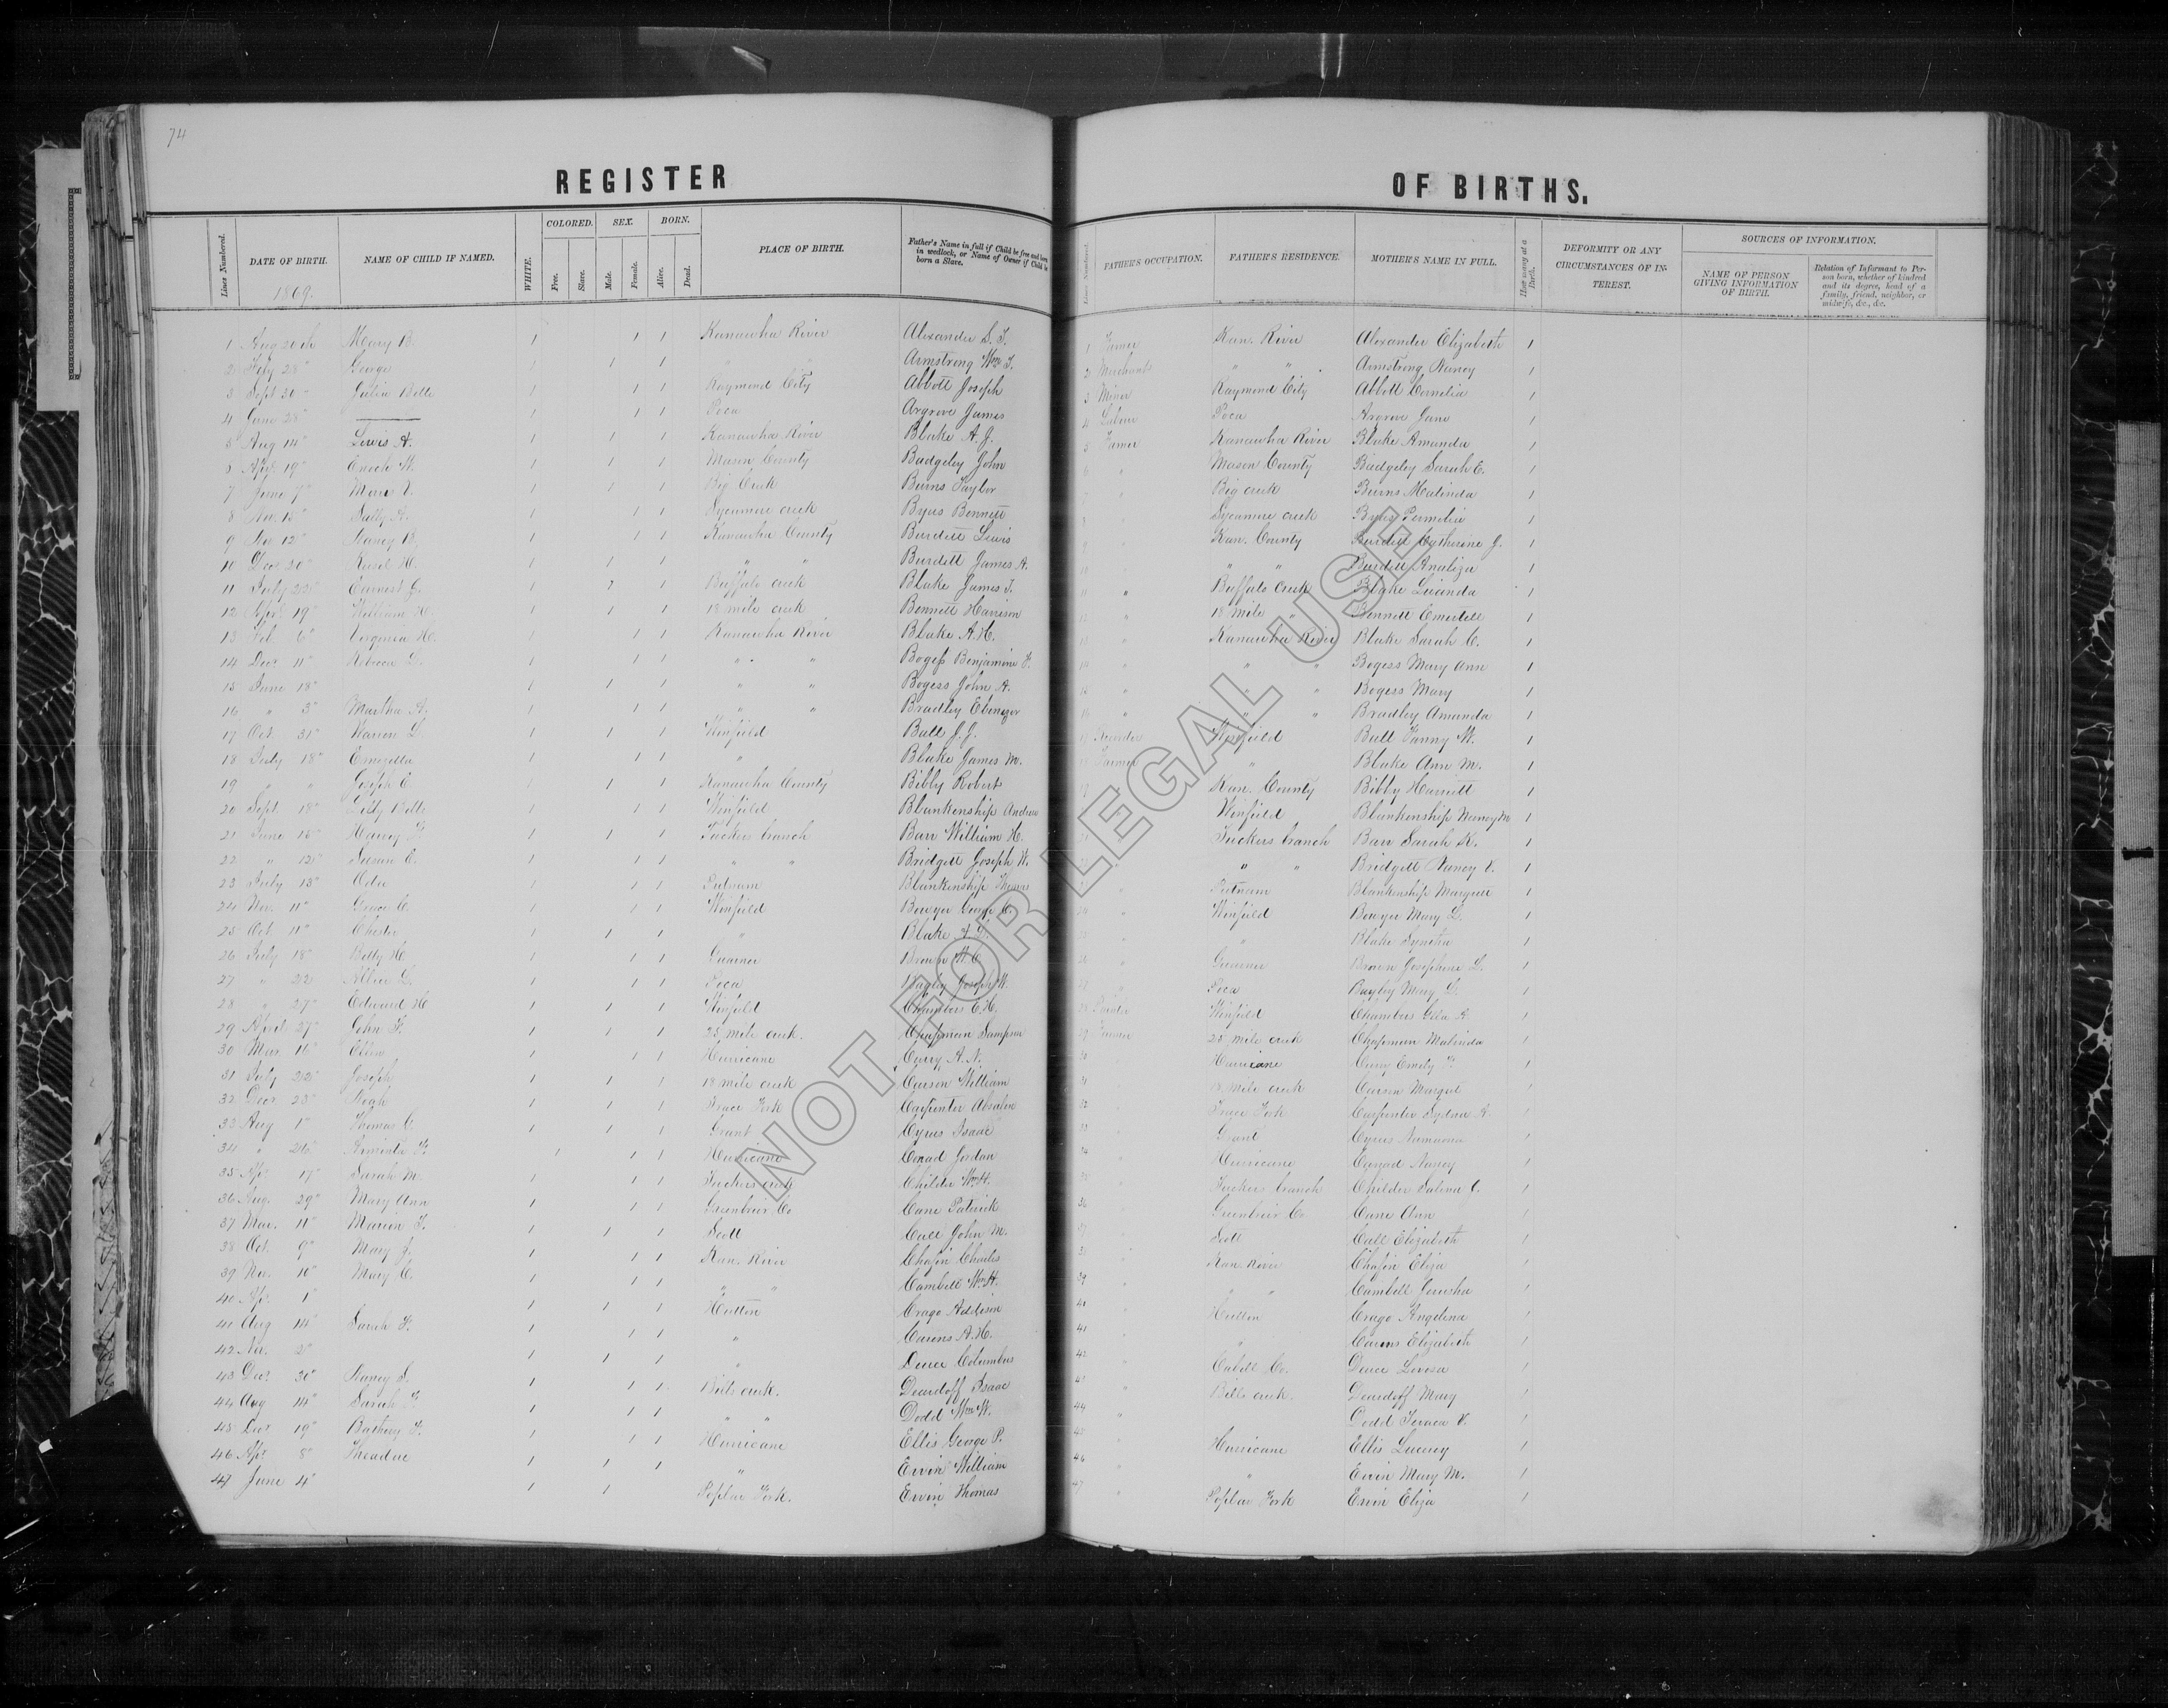 74
REGISTER OF BIRTHS.
Lines Numbered. DATE OF BIRTH. NAME OF CHILD IF NAMED. WHITE. COLORED. Free. Slave. SEX. Male. Female. BORN. Alive. Dead. PLACE OF BIRTH. Father's Name in full if Child be free and born in wedlock, or Name of Owner if Child be born a Slave. Lines Numbered. FATHER'S OCCUPATION. FATHER'S RESIDENCE. MOTHER'S NAME IN FULL. How many at a Birth. DEFORMITY OR ANY CIRCUMSTANCES OF INTEREST. SOURCES OF INFORMATION. NAME OF PERSON GIVING INFORMATION OF BIRTH. Relation of Informant to Person born, whether of kindred and its degree, head of a family, friend, neighbor, or midwife, &c., &c.
1869.
1 Aug 20th Mary B. 1 1 1 Kanawha River Alexander S. T. 1 Farmer Kan. River Alexander Elizabeth 1
2 Feby 28" George 1 1 " " Armstrong Wm T. 2 Merchant " " Armstrong Nancy 1
3 Sept 30 Julia Belle 1 1 1 Raymond City Abbott Joseph 3 Miner Raymond City Abbott Cornelia 1
4 June 28" 1 1 1 Poca Argrove James 4 Poca Argrove Jane 1
5 Aug 14" Lewis A. 1 1 1 Kanawha River Blake A. J. 5 Farmer Kanawha River Blake Amanda 1
6 Apl 19" Enoch W. 1 1 1 Mason County Badgeley John 6 " Mason County Badgeley Sarah E. 1
7 June 7" 1 1 1 Big Creek Burns Taylor " Big creek Burns Malinda 1
8 Nov 15" Sally A. 1 1 1 Sycamore creek Byus Bennett 8 " Sycamore creek Byus Permelia 1
9 Nov 12" Nancy B. 1 1 1 Kanawha County Burdett Lewis 9 " Kan. County Burdett Catherine J. 1
10 Decr 20" 1 1 1 " " Burdett James A. 10 " " " Burdett Analiza 1
11 July 22" Earnest J. 1 1 1 Buffalo creek Blake James T. 11 " Buffalo creek Blake Lucinda 1
12 April 19" William H. 1 1 1 18 mile creek Bennett Harrison 12 " 18 mile " Bennett 1
13 Feb 6" Virginia H. 1 1 1 Kanawha River Blake A. H. 13 " Kanawha River Blake Sarah C. 1
14 Decr 11" Rebecca D. 1 1 1 " " Bogess Benjamine F. 14 " " " Bogess Mary Ann 1
15 June 18" 1 1 1 " " Bogess John A. 15 " " " Bogess Mary 1
16 " 3" Martha A. 1 1 1 " " Bradley Ebenezer 16 " " " Bradley Amanda 1
17 Oct. 31" Warren L. 1 1 1 Winfield Bull J. J. 17 Winfield Bull Fanny W. 1
18 July 18" 1 1 1 " Blake James M. 18 Farmer " Blake Ann M. 1
19 " " Joseph C. 1 1 1 Kanawha County Bibby Robert 19 Kan. County Bibby Harriett 1
20 Sept 18" Lilly Belle 1 1 1 Winfield Blankenship Andrew Winfield Blankenship Nancy M 1
21 June 15" Harvey 1 1 1 Tuckers branch Barr William H. 21 Tuckers branch Barr Sarah K. 1
22 " 12" Susan E. 1 1 1 " " Bridgett Joseph W. " " Bridgett Nancy V. 1
23 July 13" 1 1 1 Putnam Blankenship Thomas " Putnam Blankenship Margrett 1
24 Nov. 11" Grace C. 1 1 1 Winfield Bowyer George C. 24 " Winfield Bowyer Mary L. 1
25 Oct 11" Chester 1 1 1 " Blake " " Blake Syntha 1
26 July 18" Betty H. 1 1 1 Brown W. C. 26 " Brown Josephine L. 1
27 " 22" 1 1 1 Poca Bagley Joseph W. Poca Bagley Mary D. 1
28 " 27" Edward H 1 1 1 Winfield Chambers C. H. Winfield Chambers 1
29 April 27" John F. 1 1 1 25 mile creek. Chapman Sampson 29 Farmer 25 mile creek Chapman Malinda 1
30 Mar. 16" Ellen 1 1 1 Hurricane Curry A. N. 30 Hurricane Curry Emely F. 1
31 July 22" Joseph 1 1 1 18 mile creek Carson William 31 18 mile creek Carson Margret 1
32 Decr 23" Noah 1 1 1 Trace Fork Carpenter Absalom 32 Trace Fork Carpenter 1
33 Aug 1" Thomas C. 1 1 1 Grant Cyrus Isaac Grant Cyrus 1
34 " 26" Araminta F. 1 1 1 Hurricane Conad Jordan 34 Hurricane Conrad Nancy 1
35 Ap. 17" Sarah M. 1 1 1 Tuckers creek Childer Wm H. 35 Tucker branch Childer Salina C. 1
36 Aug. 29" Mary Ann 1 1 1 Greenbrier Co Cane Patrick 36 Greenbrier Co. Cane Ann 1
37 Mar. 11" Marion T. 1 1 1 Scott Call John M. 37 Scott Call Elizabeth 1
38 Oct. 9" Mary J. 1 1 1 Kan. River Chapin Charles Kan. River Chapin Eliza 1
39 Nov. 10" Mary C. 1 1 1 " " Cambell Wm H. 39 " " Cambell Jerusha 1
40 Ap. 1" 1 1 1 Hutton Crago Addison Hutton Crago Angelina 1
41 Aug 14" Sarah F. 1 1 1 " Carens A. H. 41 " Carens Elizabeth 1
42 Nov. 2" 1 1 1 " Deuce Columbus 42 " Cabell Co. Deuce Lovosa 1
43 Decr 30" Nancy S. 1 1 1 Bills creek. Deardoff Isaac " Bills creek. Deardoff Mary 1
44 Aug 14" Sarah F. 1 1 1 " " Dodd Wm W. 44 " Dodd 1
45 Decr 19" 1 1 1 Hurricane Ellis George P. Hurricane Ellis 1
46 Apr. 8" 1 1 1 " Ervin William 46 " " Ervin Mary M. 1
47 June 4" 1 1 Poplar Fork. Ervin Thomas 47 " Poplar Fork Ervin Eliza 1
NOT FOR LEGAL USE